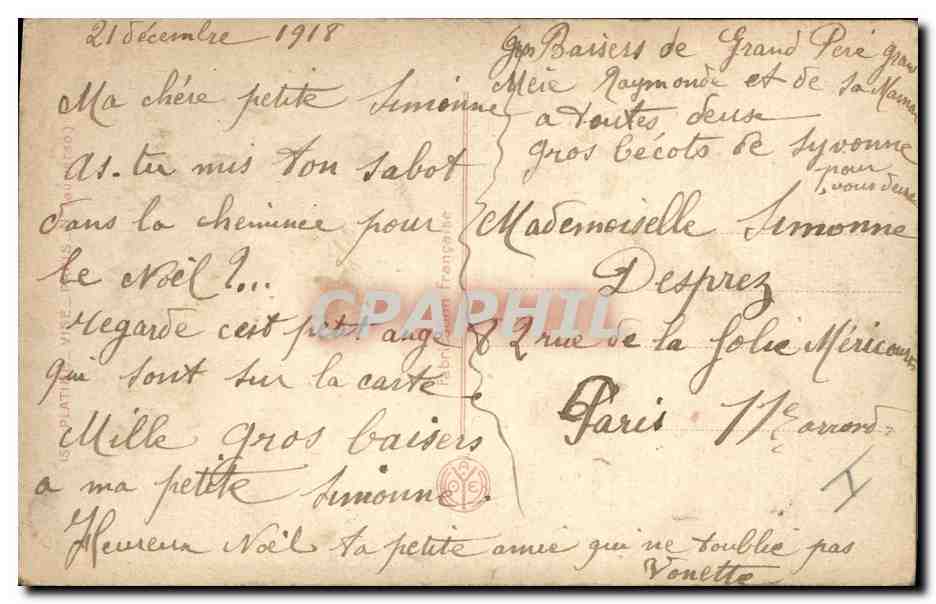 21 décembre 1918
Ma chére petite Simonne
as-tu mis ton sabot
dans la cheminée pour
le Noël ?...
regarde c'est petit ange
qui sont sur la carte
Mille gros baisers
a ma petite Simonne.
Heureux Noël ta petite amie qui ne t'oublie pas
Yonette
Gros Baisers de Grand Peré Grand
Mére Raymonde et de sa Maman
a toutes deux
gros bécots de Syvonne
pour
vous deux
Mademoiselle Simonne
Desprez
82 rue de la folie Méricourt
Paris 11e arrond=
CPAPHIL
Fabrication Française